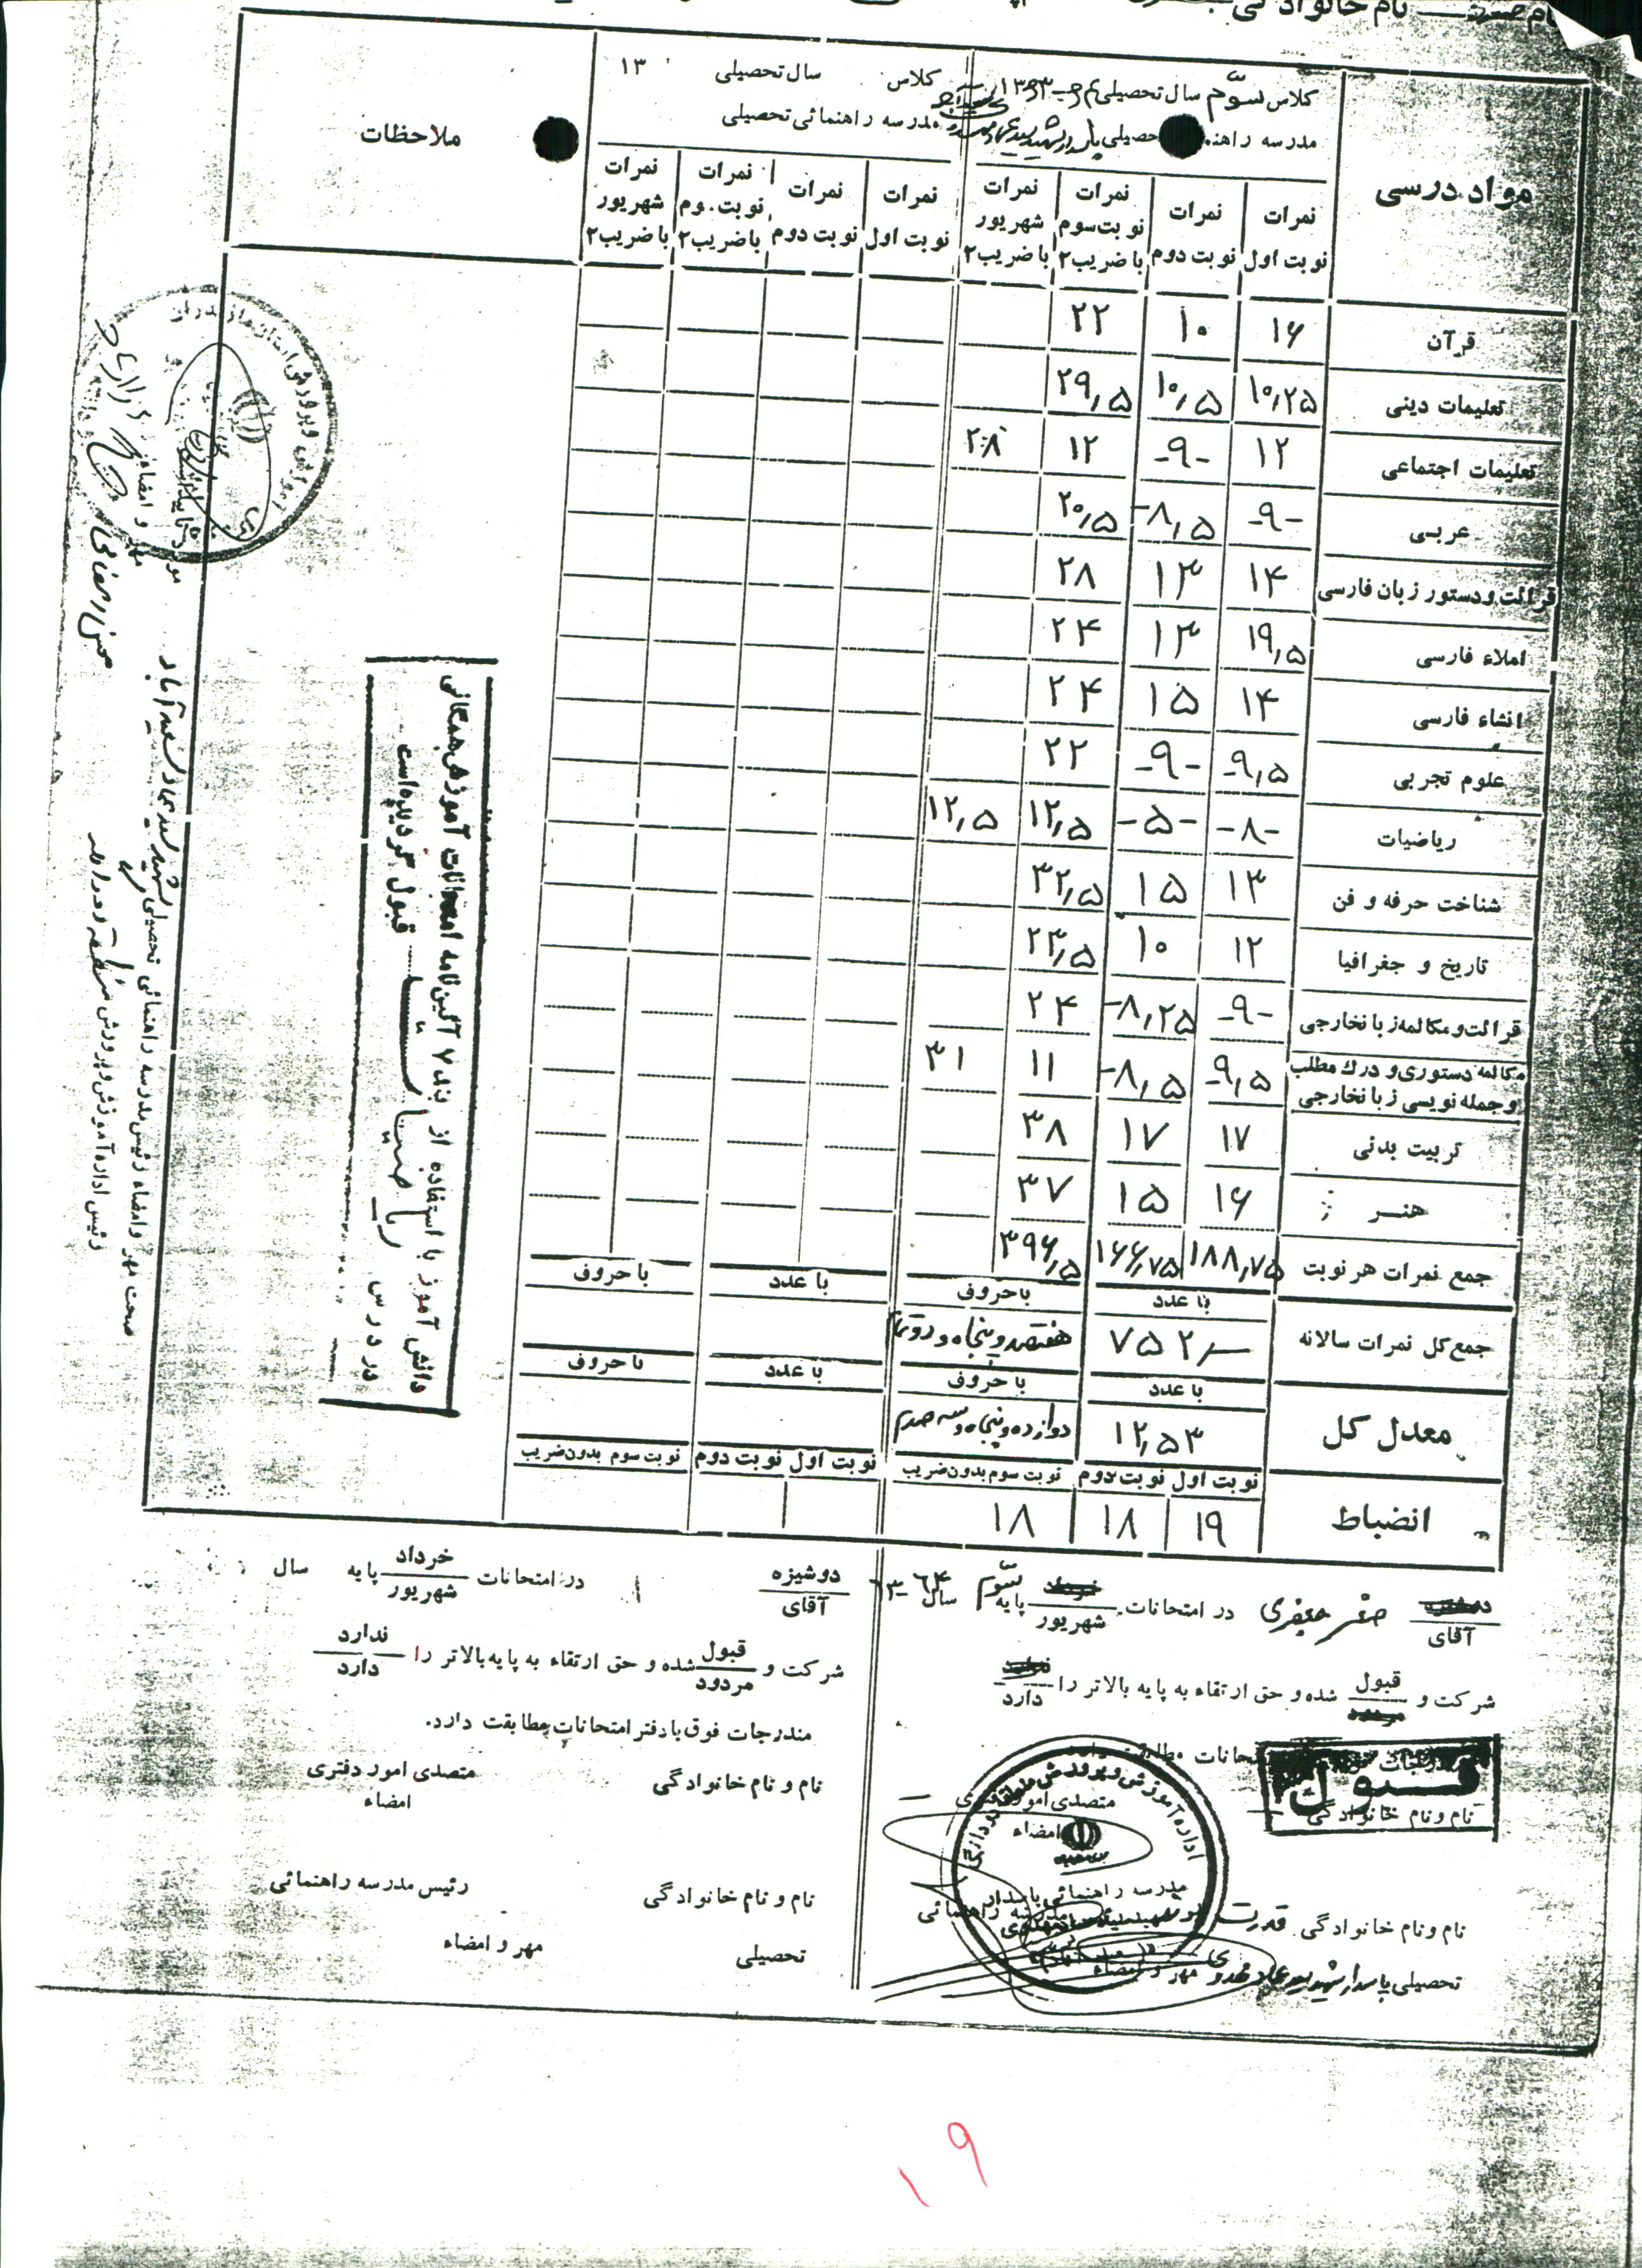 نام خانوادگی
کلاس سوّم سال تحصیلی ۶۴-۱۳۶۳
مدرسه راهنمائی تحصیلی پاسدار شهید
کلاس سال تحصیلی ۱۳
مدرسه راهنمائی تحصیلی
ملاحظات
مواد درسی
نمرات نوبت اول
نمرات نوبت دوم
نمرات نوبت سوم با ضریب ۲
نمرات شهریور با ضریب ۲
نمرات نوبت اول
نمرات نوبت دوم
نمرات نوبت سوم با ضریب ۲
نمرات شهریور با ضریب ۲
قرآن ۱۶ ۱۰ ۲۲
تعلیمات دینی ۱۰٫۲۵ ۱۰٫۵ ۲۹٫۵
تعلیمات اجتماعی ۱۲ -۹- ۱۲ ۲۸
عربی -۹- -۸٫۵ ۲۰٫۵
قرائت و دستور زبان فارسی ۱۴ ۱۳ ۲۸
املاء فارسی ۱۹٫۵ ۱۳ ۲۴
انشاء فارسی ۱۴ ۱۵ ۲۴
علوم تجربی -۹٫۵ -۹- ۲۲
ریاضیات -۸- -۵- ۱۲٫۵ ۱۲٫۵
شناخت حرفه و فن ۱۳ ۱۵ ۳۲٫۵
تاریخ و جغرافیا ۱۲ ۱۰ ۲۳٫۵
قرائت و مکالمه زبان خارجی -۹- -۸٫۲۵ ۲۴
مکالمه دستوری و درك مطلب و جمله نویسی زبان خارجی -۹٫۵ -۸٫۵ ۱۱ ۳۱
تربیت بدنی ۱۷ ۱۷ ۳۸
هنر ۱۶ ۱۵ ۳۷
جمع نمرات هر نوبت ۱۸۸٫۷۵ ۱۶۶٫۷۵ ۳۹۶٫۵
با عدد با حروف با عدد با حروف
جمع کل نمرات سالانه ۷۵۲ هفتصد و پنجاه و دو تمام
با عدد با حروف با عدد با حروف
معدل کل ۱۲٫۵۳ دوازده و پنجاه و سه صدم
نوبت اول نوبت دوم نوبت سوم بدون ضریب نوبت اول نوبت دوم نوبت سوم بدون ضریب
انضباط ۱۹ ۱۸ ۱۸
دانش آموز با استفاده از بند ۷ آئین نامه امتحانات آموزش همگانی
در درس ریاضیات قبول گردیده است
صحت مهر و امضاء رئیس مدرسه راهنمائی تحصیلی
رئیس اداره آموزش و پرورش
آقای صفر جعفری در امتحانات شهریور پایه سوّم سال ۶۴-۶۳
شرکت و قبول شده و حق ارتقاء به پایه بالاتر را دارد
امتحانات مطابقت دارد
قبول
نام و نام خانوادگی
متصدی امور دفتری
امضاء
نام و نام خانوادگی قدرت
تحصیلی پاسدار شهید
مهر و امضاء
دوشیزه
آقای
در امتحانات خرداد شهریور پایه سال
شرکت و قبول مردود شده و حق ارتقاء به پایه بالاتر را ندارد دارد
مندرجات فوق با دفتر امتحانات مطابقت دارد.
نام و نام خانوادگی متصدی امور دفتری
امضاء
نام و نام خانوادگی رئیس مدرسه راهنمائی
تحصیلی مهر و امضاء
۱۹